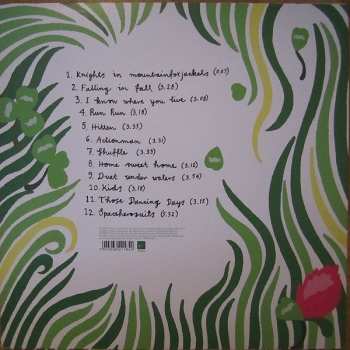 1. Knights in mountainfoxjackets
2. Falling in fall (3.28)
3. I know where you live (3.08)
4. Run Run (3.18)
5. Hitten (3.33)
6. Actionman (3.31)
7. Shuffle (3.33)
8. Home sweet home (3.12)
9. Duet under waters (3.54)
10. Kids (3.18)
11. Those Dancing Days (3.15)
12. Spaceherosuits (5.32)